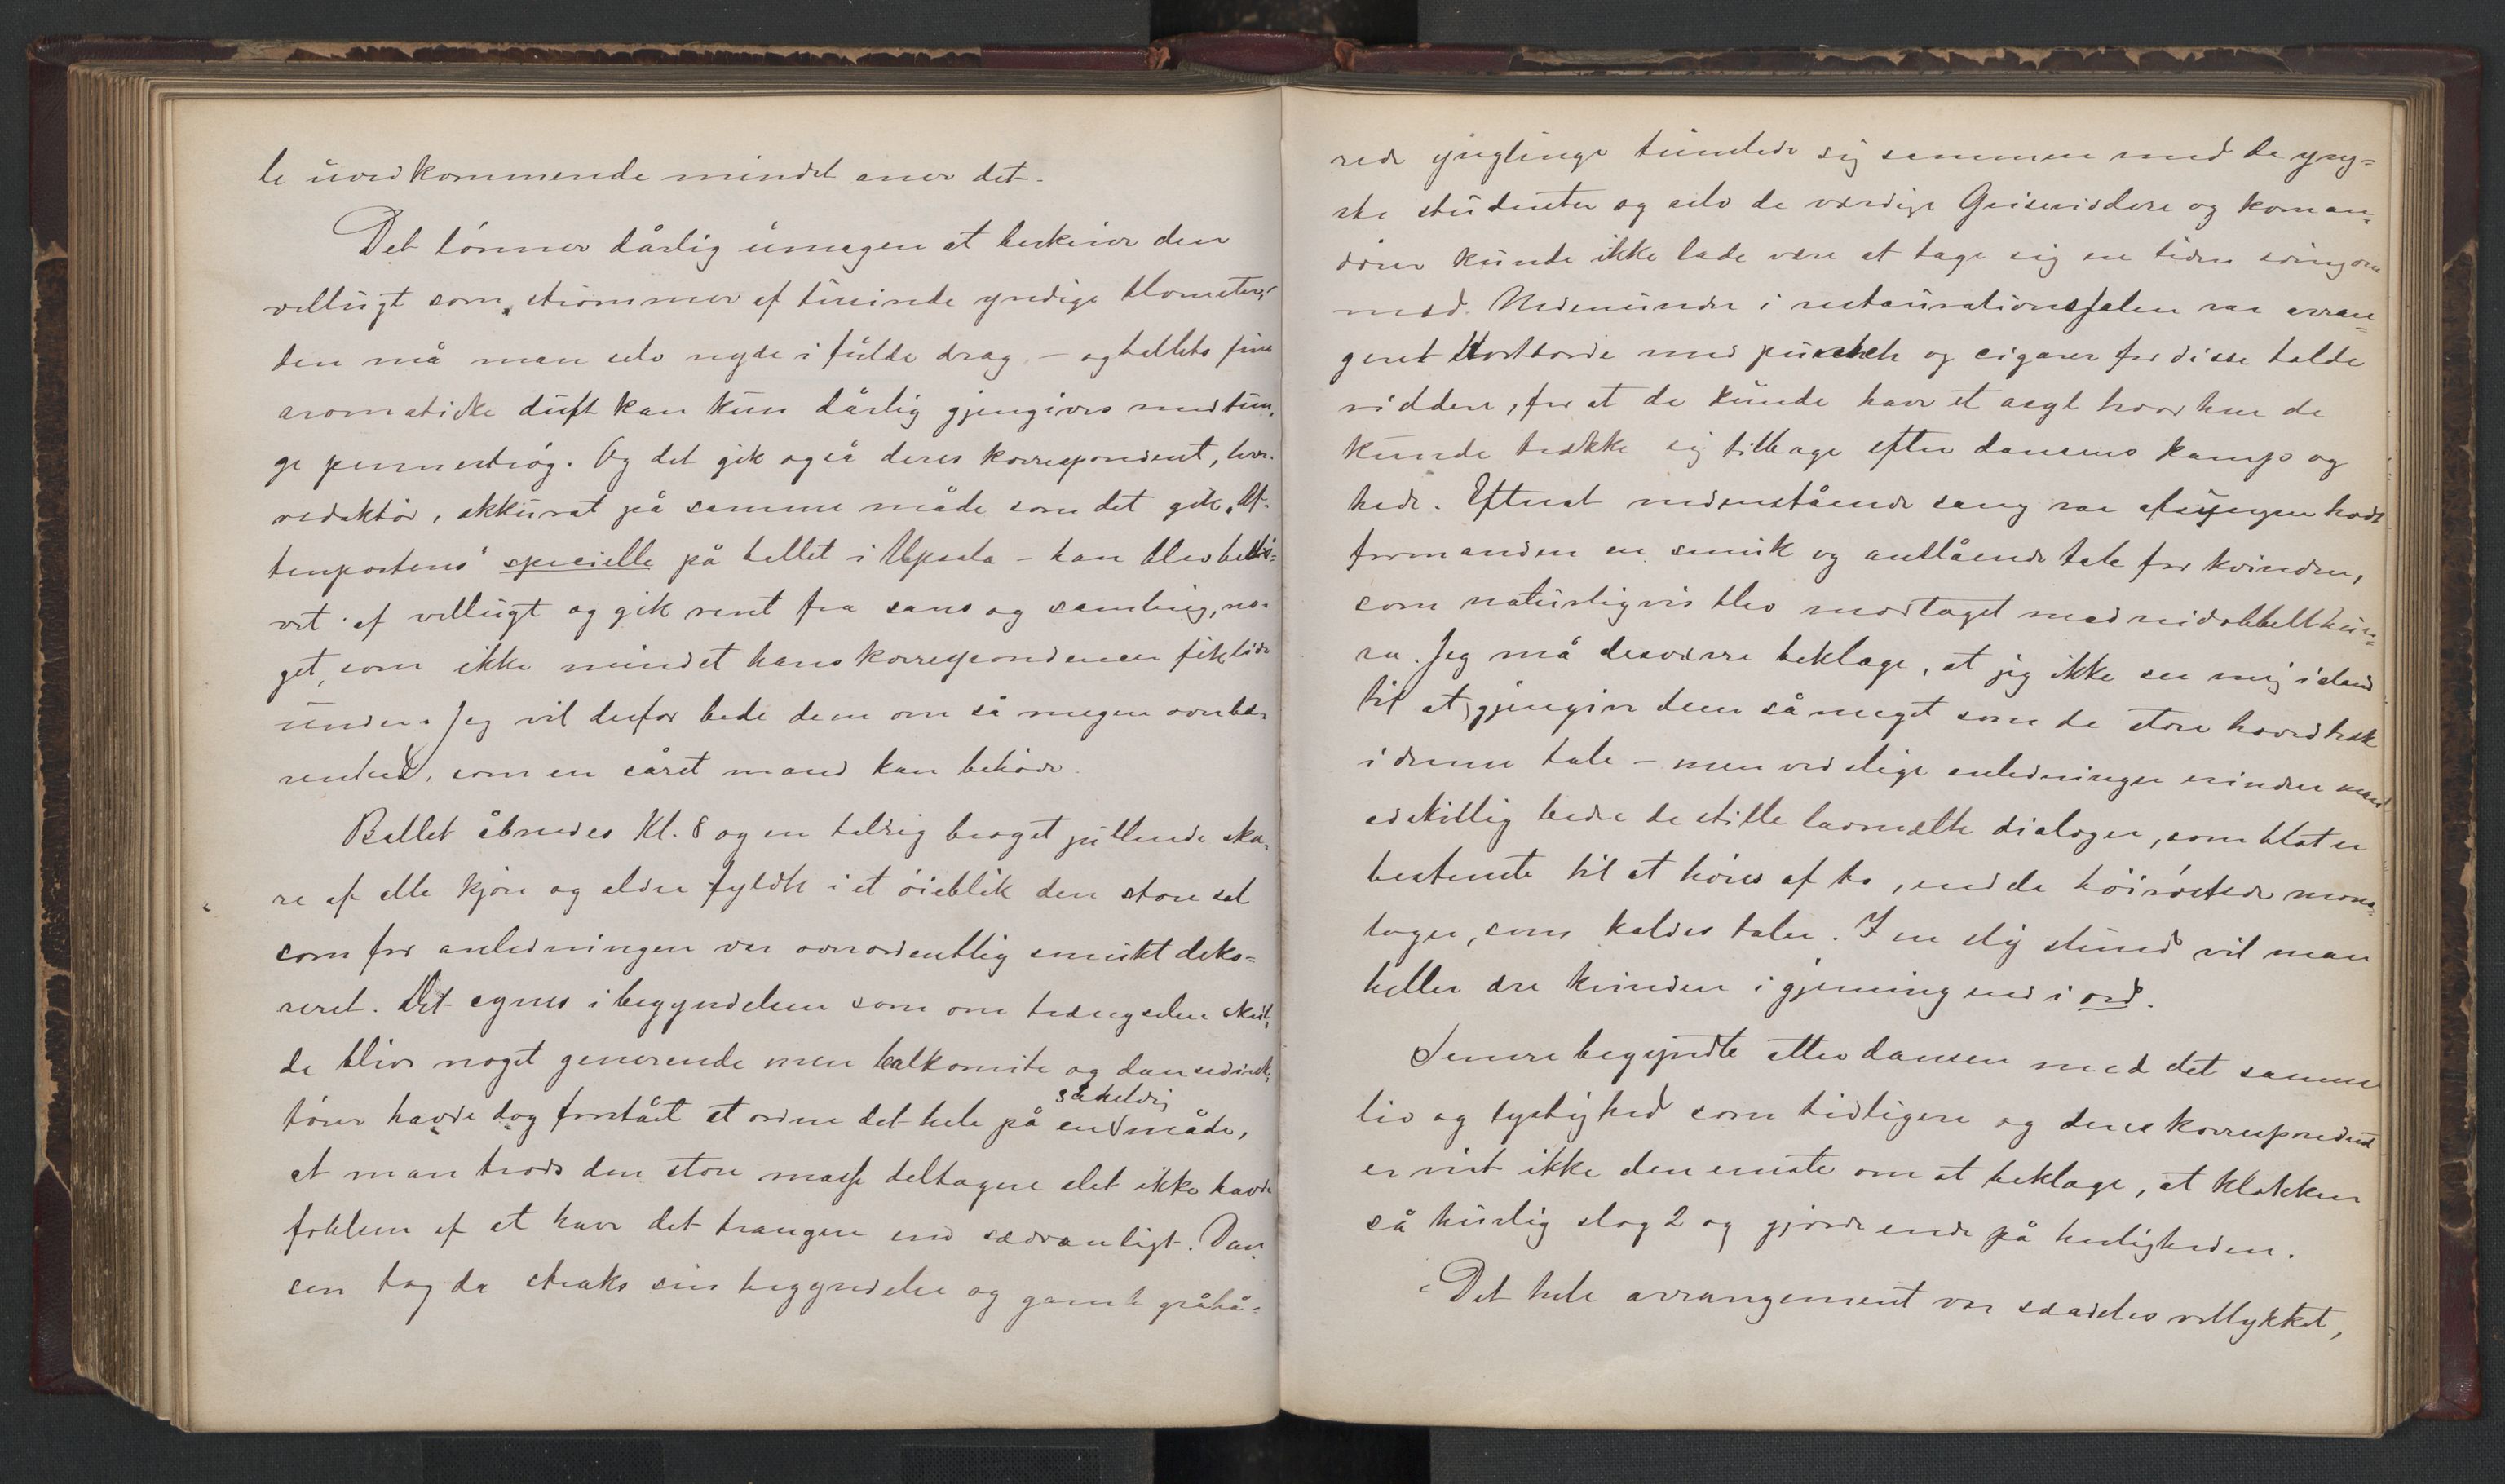 le uvedkommende mindst aner det.
Det lønner dårlig umagen at beskrive den
vellugt som strømmer af tusinde yndige blomster,
den må man selv nyde i fulde drag – og ballets fine
aromatiske duft kan kun dårlig gjengives med tun-
ge pennestrøg. Og det gik også deres korrespondent, herr
redaktør, akkurat på samme måde som det gik „Af-
tenpostens" specielle på ballet i Upsala – han blev bedø-
vet af vellugt og gik rent fra sans og samling, no-
get, som ikke mindst hans korrespondencer fik lide
under. Jeg vil derfor bede dem om så megen overbæ-
renhed, som en såret mand kan behøve.
Ballet åbnedes Kl. 8 og en talrig broget jublende ska-
re af alle kjøn og aldre fyldte i et øieblik den store sal
som for anledningen var overordentlig smukt deko-
reret. Det synes i begyndelsen som om trængselen skul-
de blive noget generende men balkomite og dansedirek-
tører havde dog forstået at ordne det hele på en så heldig måde,
at man trods den store masse deltagere slet ikke havde
følelsen af at have det trangere end sædvanligt. Dan-
sen tog da straks sin begyndelse og gamle gråhå-
rede ynglinge tumlede sig sammen med de yng-
ste studenter og selv de værdige Griseriddere og koman-
dører kunde ikke lade være at tage sig en liden svingom
med. Nedenunder i restaurationssalen var arran-
geret Kortborde med punsch og cigarer for disse balde
riddere, for at de kunde have et asyl hvor hen de
kunde trække sig tilbage efter dansens kamp og
hede. Efterat nedenstående sang var afsungen holdt
formanden en smuk og anslående tale for kvinden,
som naturligvis blev modtaget med nidobbelt hur-
ra. Jeg må desværre beklage, at jeg ikke ser mig istand
til at gjengive dem så meget som de store hovedtræk
i denne tale – men ved slige anledninger erindrer man
adskillig bedre de stille lavmælte dialoger, som blot er
bestemte til at høres af to, end de høirøstede mono-
loger, som kaldes taler. I en slig stund vil man
heller ære kvinden i gjerning end i ord.
Senere begyndte atter dansen med det samme
liv og lystighed som tidligere og deres korrespondent
er vist ikke den eneste om at beklage, at klokken
så hurtig slog 2 og gjorde ende på herligheden.
Det hele arrangement var særdeles vellykket,